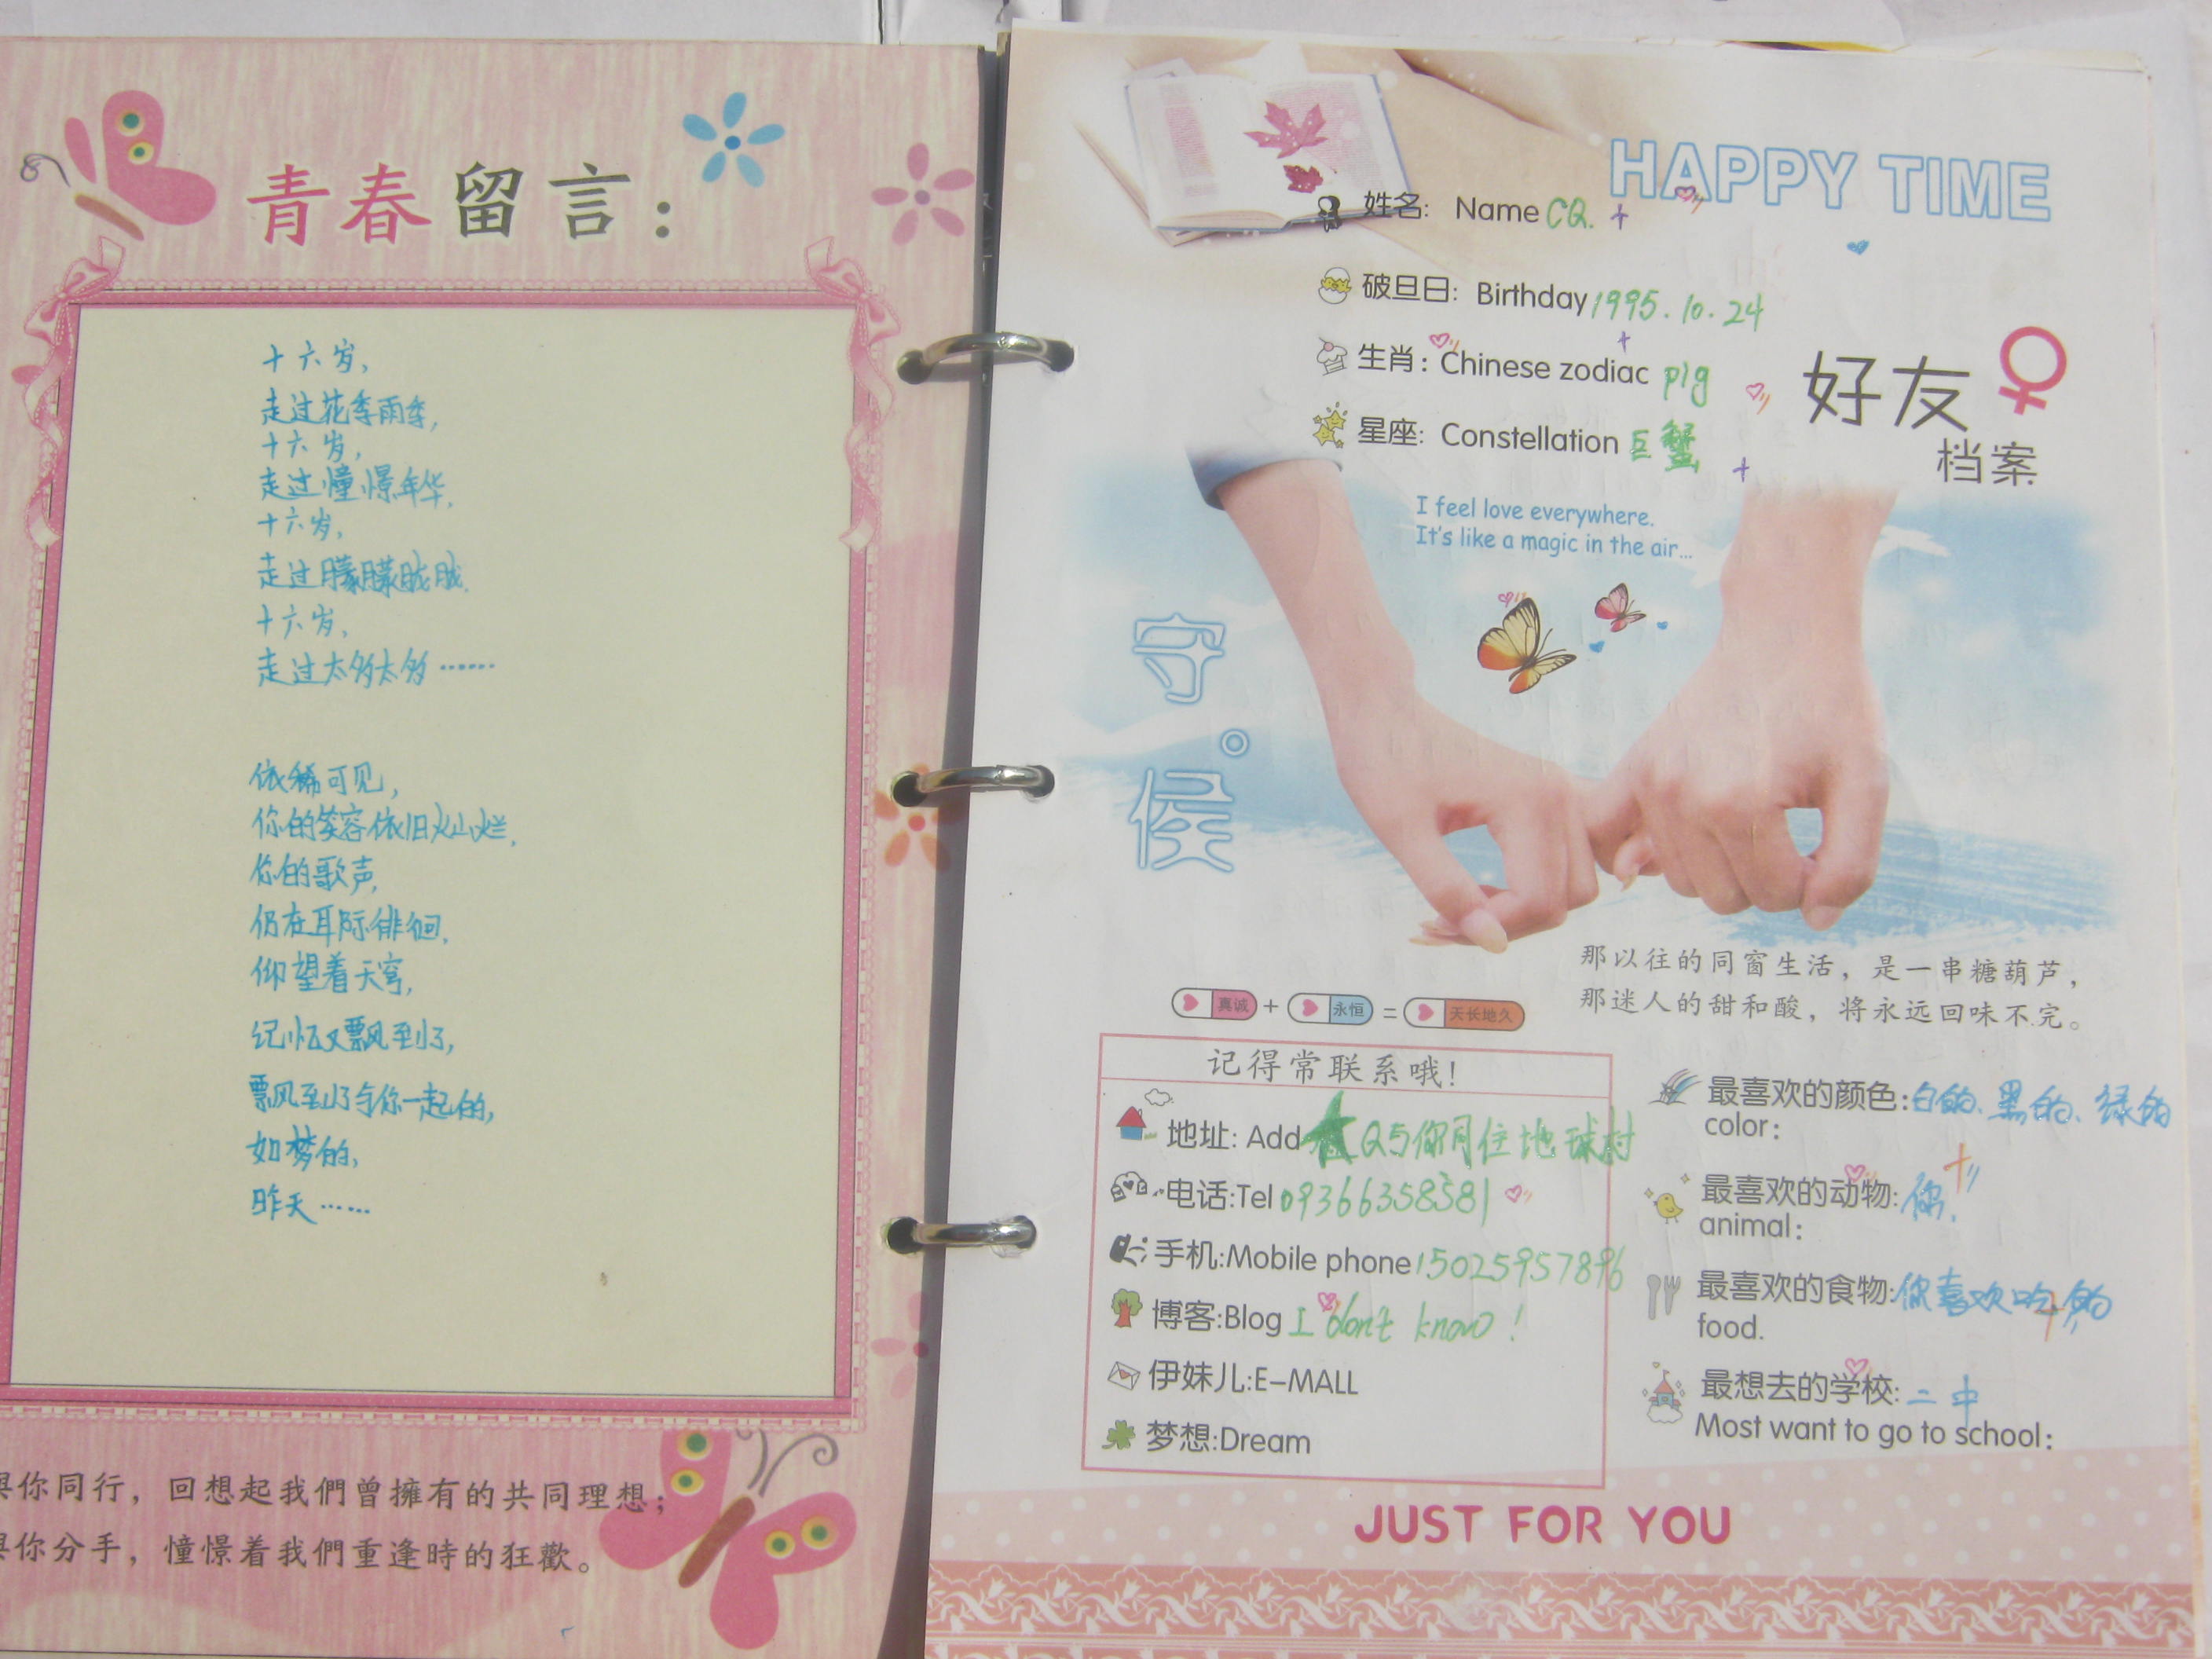 青春留言：
十六岁，
走过花季雨季，
十六岁，
走过憧憬年华，
十六岁，
走过朦朦胧胧．
十六岁，
走过太多太多……
依稀可见，
你的笑容依旧灿烂，
你的歌声，
仍在耳际徘徊．
仰望着天穹，
记忆又飘到了，
飘到了与你一起的，
如梦的，
昨天……
與你同行，回想起我們曾擁有的共同理想；
與你分手，憧憬着我們重逢時的狂歡。
HAPPY TIME
姓名: Name CQ.
破旦日: Birthday 1995.10.24
生肖: Chinese zodiac pig
星座: Constellation 巨蟹
好友
档案
I feel love everywhere.
It's like a magic in the air...
守。候
那以往的同窗生活，是一串糖葫芦，
那迷人的甜和酸，将永远回味不完。
真诚 + 永恒 = 天长地久
记得常联系哦!
地址: Add Q与你同住地球村
电话:Tel 09366358581
手机:Mobile phone 15025957896
博客:Blog I don't know!
伊妹儿:E-MALL
梦想:Dream
最喜欢的颜色:白的、黑的、绿的
color:
最喜欢的动物:你.
animal:
最喜欢的食物:你喜欢吃的
food.
最想去的学校:二中
Most want to go to school:
JUST FOR YOU